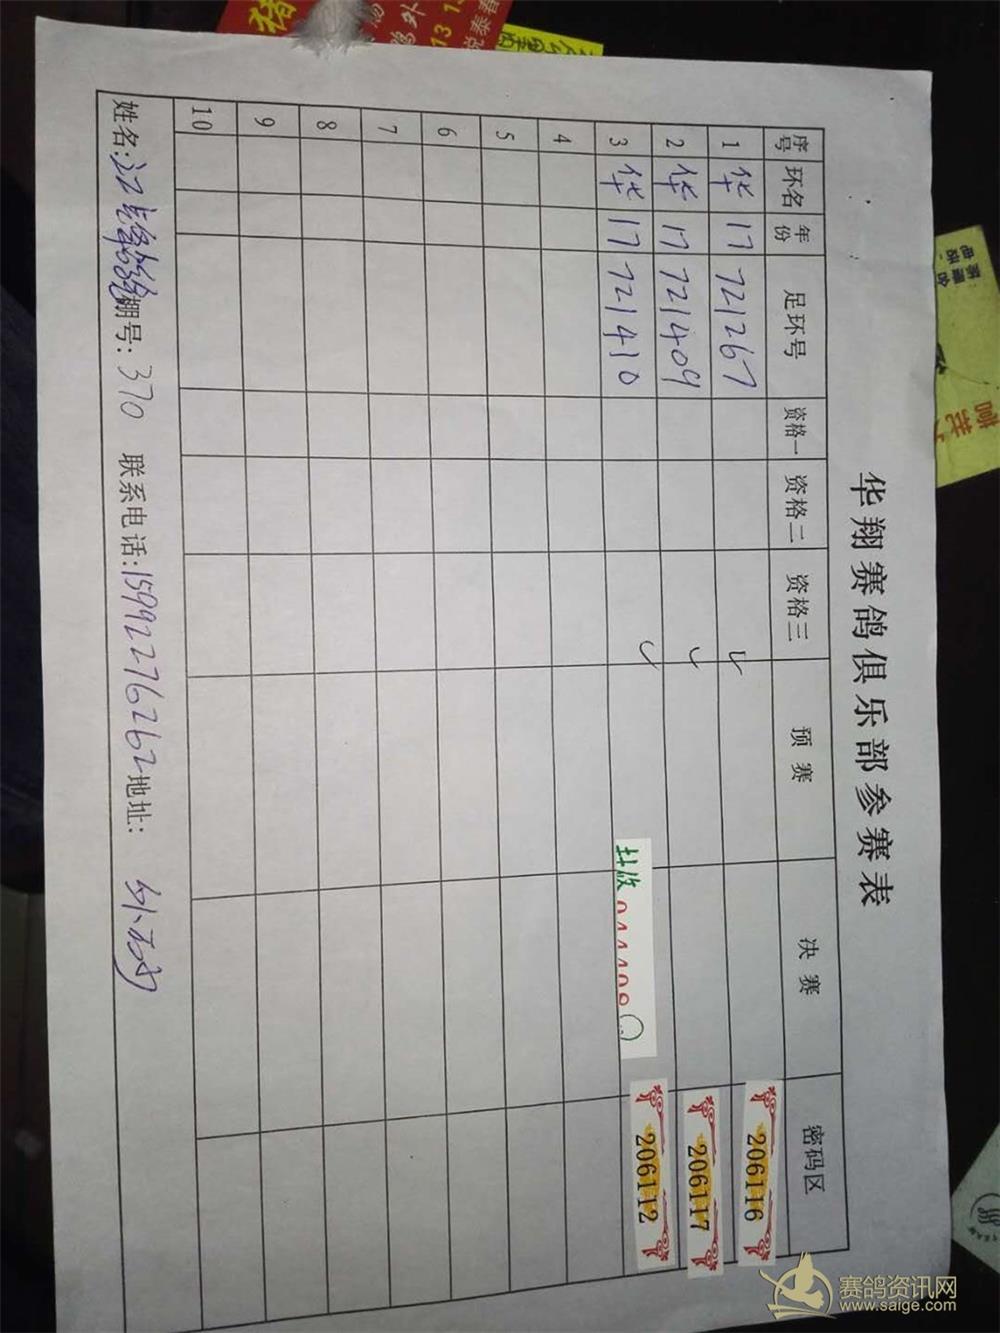 华翔赛鸽俱乐部参赛表
序号 环名 年份 足环号 资格一 资格二 资格三 预赛 决赛 密码区
1 华 17 721267 206116
2 华 17 721409 206117
3 华 17 721410 206112
4
5
6
7
8
9
10
姓名: 江 棚号: 370 联系电话: 15992276262 地址:
猪
外
13
赛鸽资讯网
www.saige.com